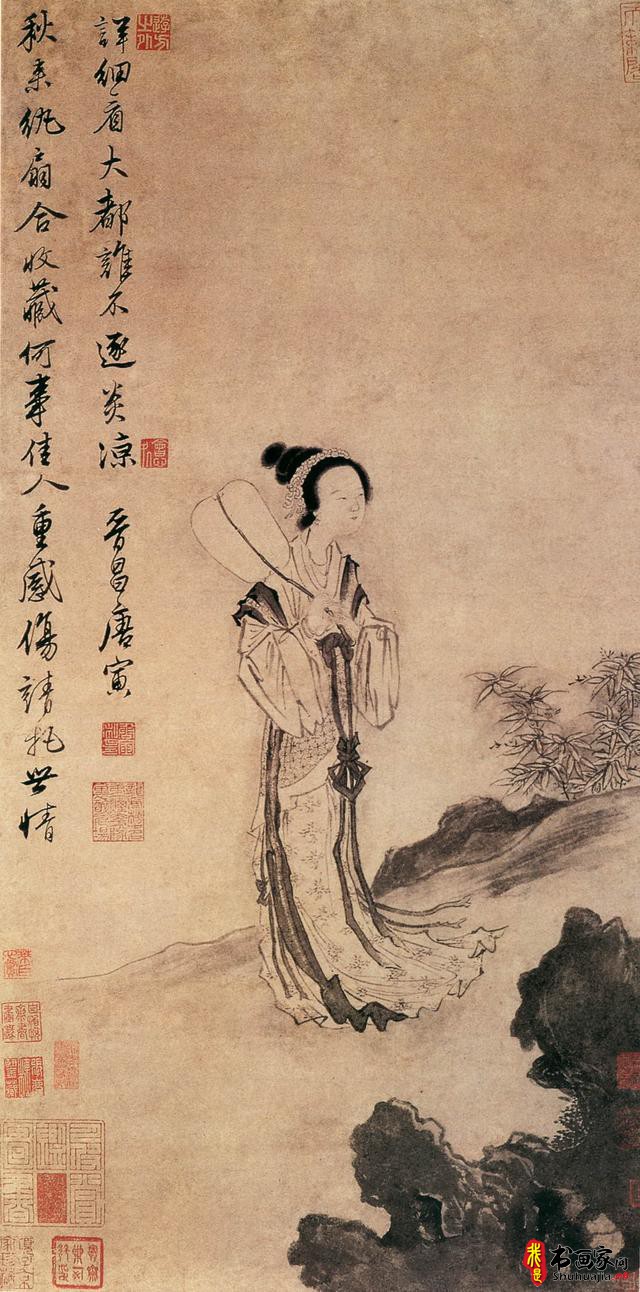 秋来紈扇合收藏何事佳人重感傷請托世情
詳細看大都誰不逐炎涼 晉昌唐寅
我是 书画家网
Shuhuajia.net